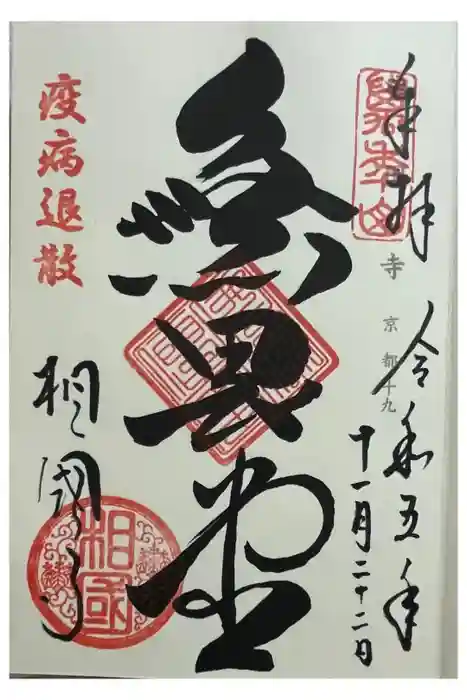 奉拝
萬年山
寺
京都十九
令和五年
十一月二十二日
無畏堂
疫病退散
相國寺
相國